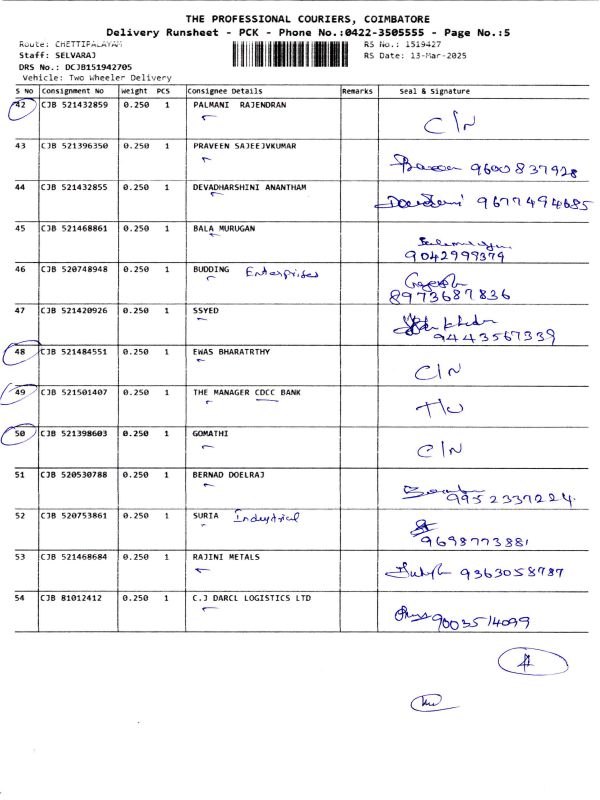 THE PROFESSIONAL COURIERS, COIMBATORE
Delivery Runsheet - PCK - Phone No.:0422-3505555 - Page No.:5
Route: CHETTIPALAYAM RS No.: 1519427
Staff: SELVARAJ RS Date: 13-Mar-2025
DRS No.: DCJB151942705
Vehicle: Two Wheeler Delivery
S No Consignment No Weight PCS Consignee Details Remarks Seal & Signature
42 CJB 521432859 0.250 1 PALMANI RAJENDRAN C/N
43 CJB 521396350 0.250 1 PRAVEEN SAJEEJVKUMAR 9600837928
44 CJB 521432855 0.250 1 DEVADHARSHINI ANANTHAM 9677494685
45 CJB 521468861 0.250 1 BALA MURUGAN
9042999379
46 CJB 520748948 0.250 1 BUDDING Enterprises
8973687836
47 CJB 521420926 0.250 1 SSYED
9443567339
48 CJB 521484551 0.250 1 EWAS BHARATRTHY C/N
49 CJB 521501407 0.250 1 THE MANAGER CDCC BANK
50 CJB 521398603 0.250 1 GOMATHI C/N
51 CJB 520530788 0.250 1 BERNAD DOELRAJ
9952337224
52 CJB 520753861 0.250 1 SURIA Industrial
9698773881
53 CJB 521468684 0.250 1 RAJINI METALS 9363058787
54 CJB 81012412 0.250 1 C.J DARCL LOGISTICS LTD 9003514099